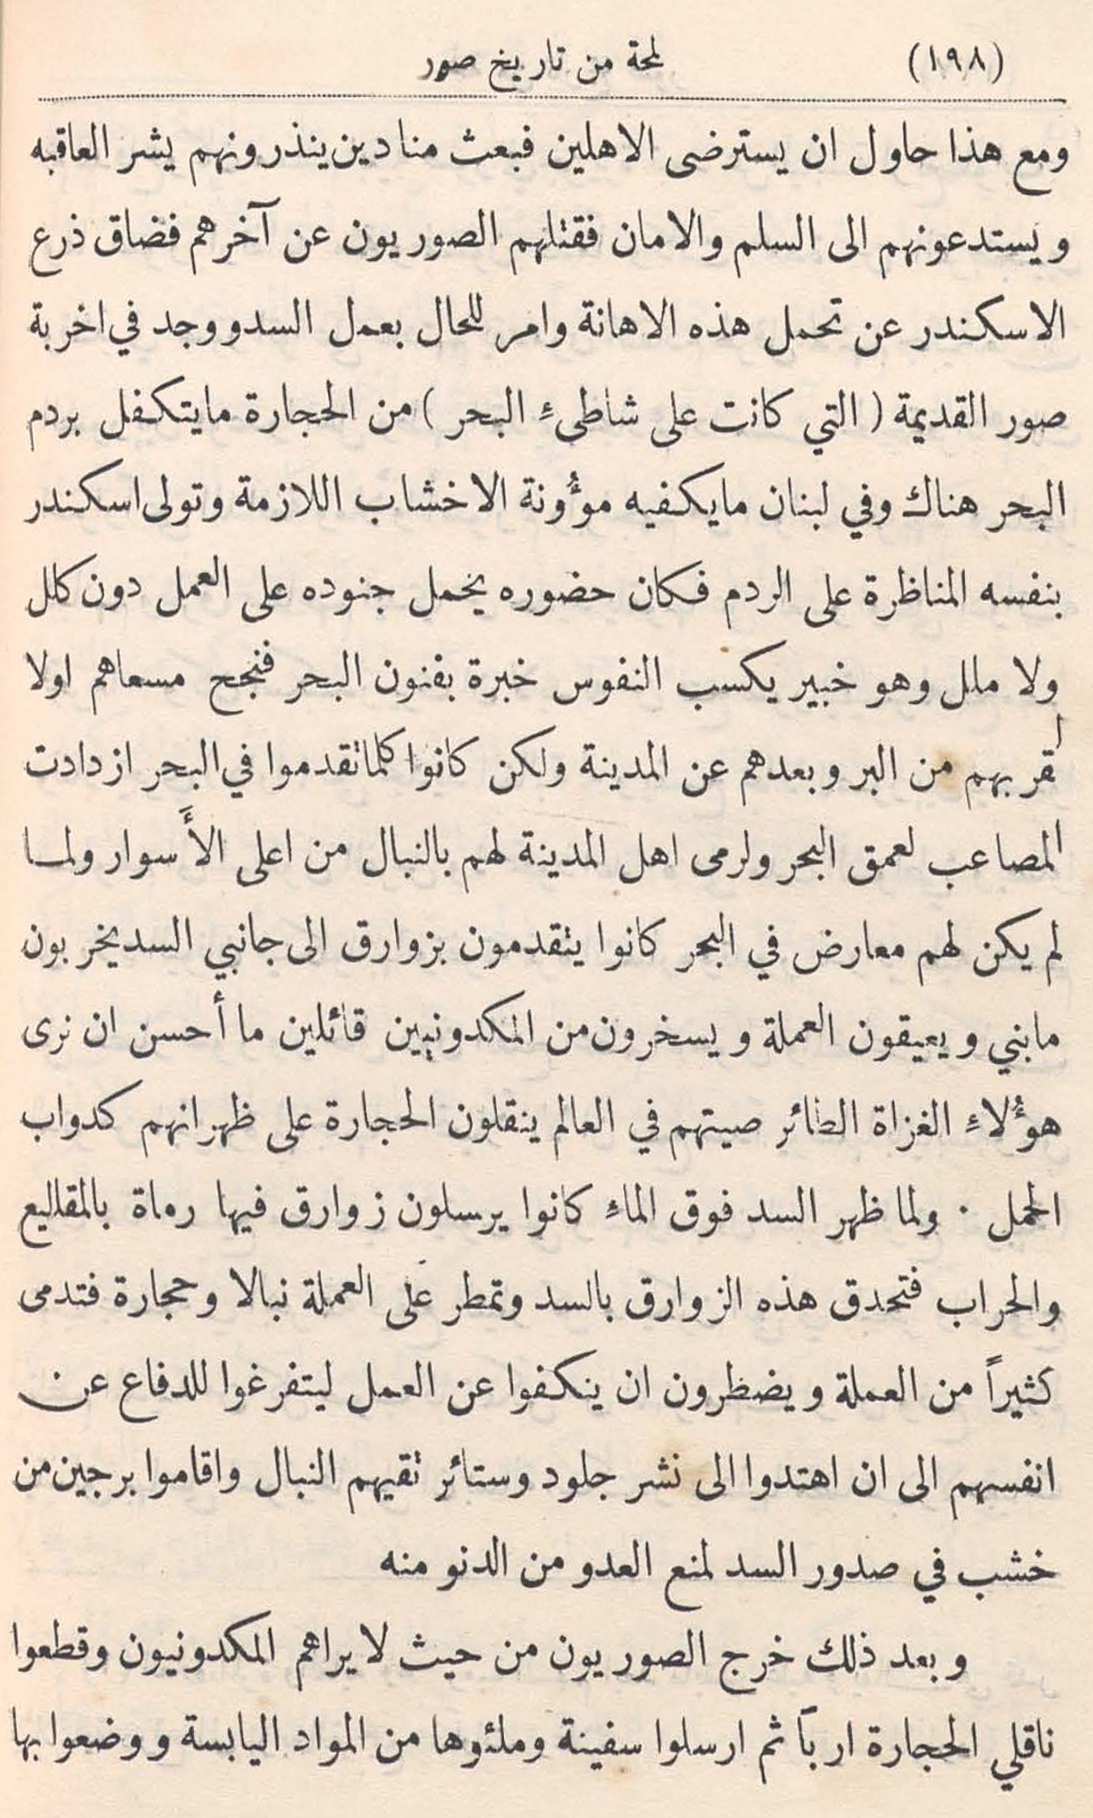 (١٩٨) لمحة من تاريخ صور
ومع هذا حاول ان يسترضى الاهلين فبعث منادين ينذرونهم بشر العاقبه
ويستدعونهم الى السلم والامان فقتلهم الصوريون عن آخرهم فضاق ذرع
الاسكندر عن تحمل هذه الاهانة وامر للحال بعمل السد ووجد في اخربة
صور القديمة ( التي كانت على شاطىء البحر ) من الحجارة مايتكفل بردم
البحر هناك وفي لبنان مايكفيه مؤُونة الاخشاب اللازمة وتولى اسكندر
بنفسه المناظرة على الردم فكان حضوره يحمل جنوده على العمل دون كلل
ولا ملل وهو خبير يكسب النفوس خبرة بفنون البحر فنجح مسعاهم اولا
لقربهم من البر وبعدهم عن المدينة ولكن كانوا كلما تقدموا في البحر ازدادت
المصاعب لعمق البحر ولرمى اهل المدينة لهم بالنبال من اعلى الأَسوار ولما
لم يكن لهم معارض في البحر كانوا يتقدمون بزوارق الى جانبي السد يخربون
مابني ويعيقون العملة ويسخرون من المكدونيين قائلين ما أحسن ان نرى
هؤُلاء الغزاة الطائر صيتهم في العالم ينقلون الحجارة على ظهرانهم كدواب
الحمل ٠ ولما ظهر السد فوق الماء كانوا يرسلون زوارق فيها رماة بالمقاليع
والحراب فتحدق هذه الزوارق بالسد وتمطر على العملة نبالا وحجارة فتدمى
كثيراً من العملة ويضظرون ان ينكفوا عن العمل ليتفرغوا للدفاع عن
انفسهم الى ان اهتدوا الى نشر جلود وستائر تقيهم النبال واقاموا برجين من
خشب في صدور السد لمنع العدو من الدنو منه
وبعد ذلك خرج الصوريون من حيث لا يراهم المكدونيون وقطعوا
ناقلي الحجارة ارباً ثم ارسلوا سفينة وملئوها من المواد اليابسة ووضعوا بها